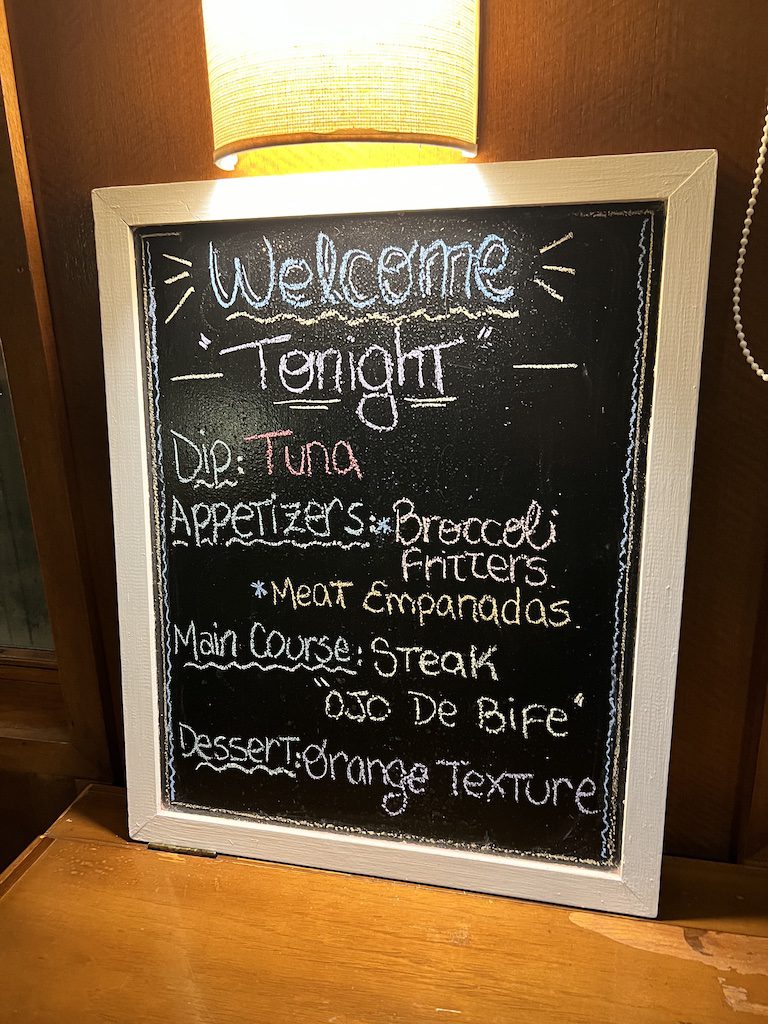 Welcome
"Tonight"
Dip: Tuna
Appetizers: *Broccoli
Fritters
*Meat Empanadas.
Main Course: Steak
"Ojo De Bife"
Dessert: Orange Texture